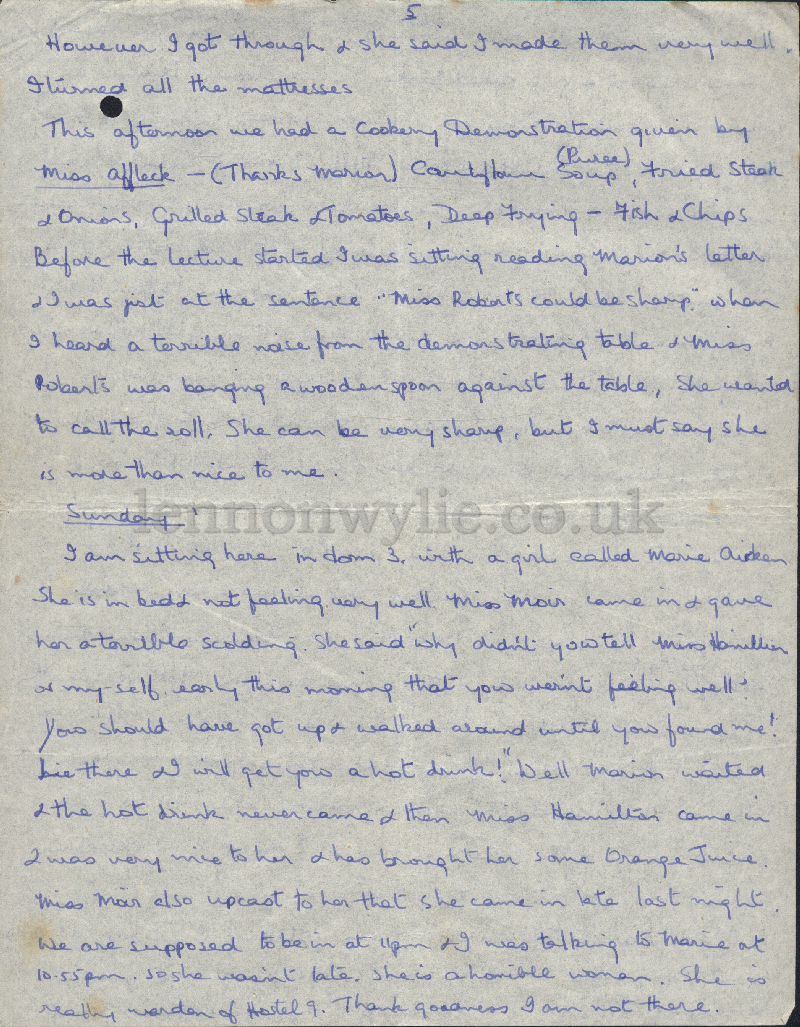 5
However I got through & she said I made them very well.
I turned all the mattresses
This afternoon we had a Cookery Demonstration given by
Miss Affleck - (Thanks Marion) Cauliflower Soup (Puree), Fried Steak
& Onions, Grilled Steak & Tomatoes, Deep Frying - Fish & Chips
Before the lecture started I was sitting reading Marion's letter
& I was just at the sentence "Miss Roberts could be sharp" when
I heard a terrible noise from the demonstrating table & Miss
Roberts was banging a wooden spoon against the table, She wanted
to call the roll. She can be very sharp, but I must say she
is more than nice to me.
lennonwylie.co.uk
Sunday'
I am sitting here in dorm 3. with a girl called Marie
She is in bed & not feeling very well. Miss Moir came in & gave
her a terrible scolding. She said "why didn't you tell Miss Hamilton
or my-self early this morning that you weren't feeling well?
You should have got up & walked around until you found me!
Lie there & I will get you a hot drink!" Well Marion waited
& the hot drink never came & then Miss Hamilton came in
& was very nice to her & has brought her some Orange Juice.
Miss Moir also upcast to her that she came in late last night.
We are supposed to be in at 11pm & I was talking to Marie at
10.55pm. so she wasn't late. She is a horrible woman. She is
really warden of Hostel 9. Thank goodness I am not there.